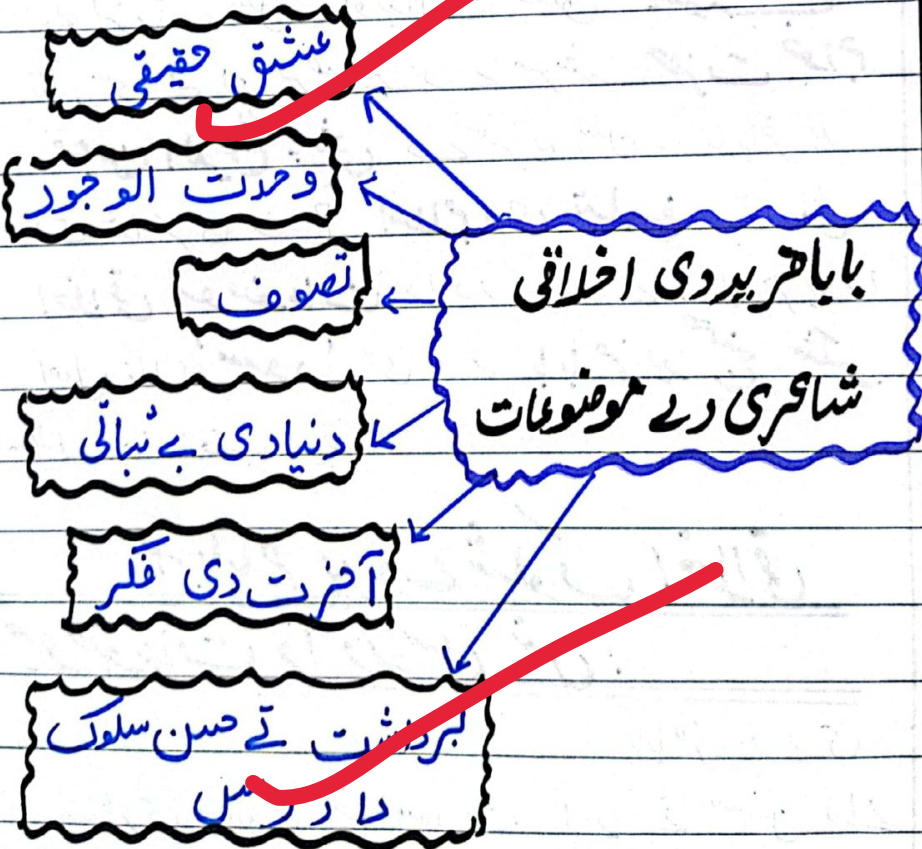 بابا فرید دی اخلاقی
شاعری دے موضوعات
عشق حقیقی
وحدت الوجود
تصوف
دنیا دی بے ثباتی
آخرت دی فکر
برداشت تے حسن سلوک
دا درس